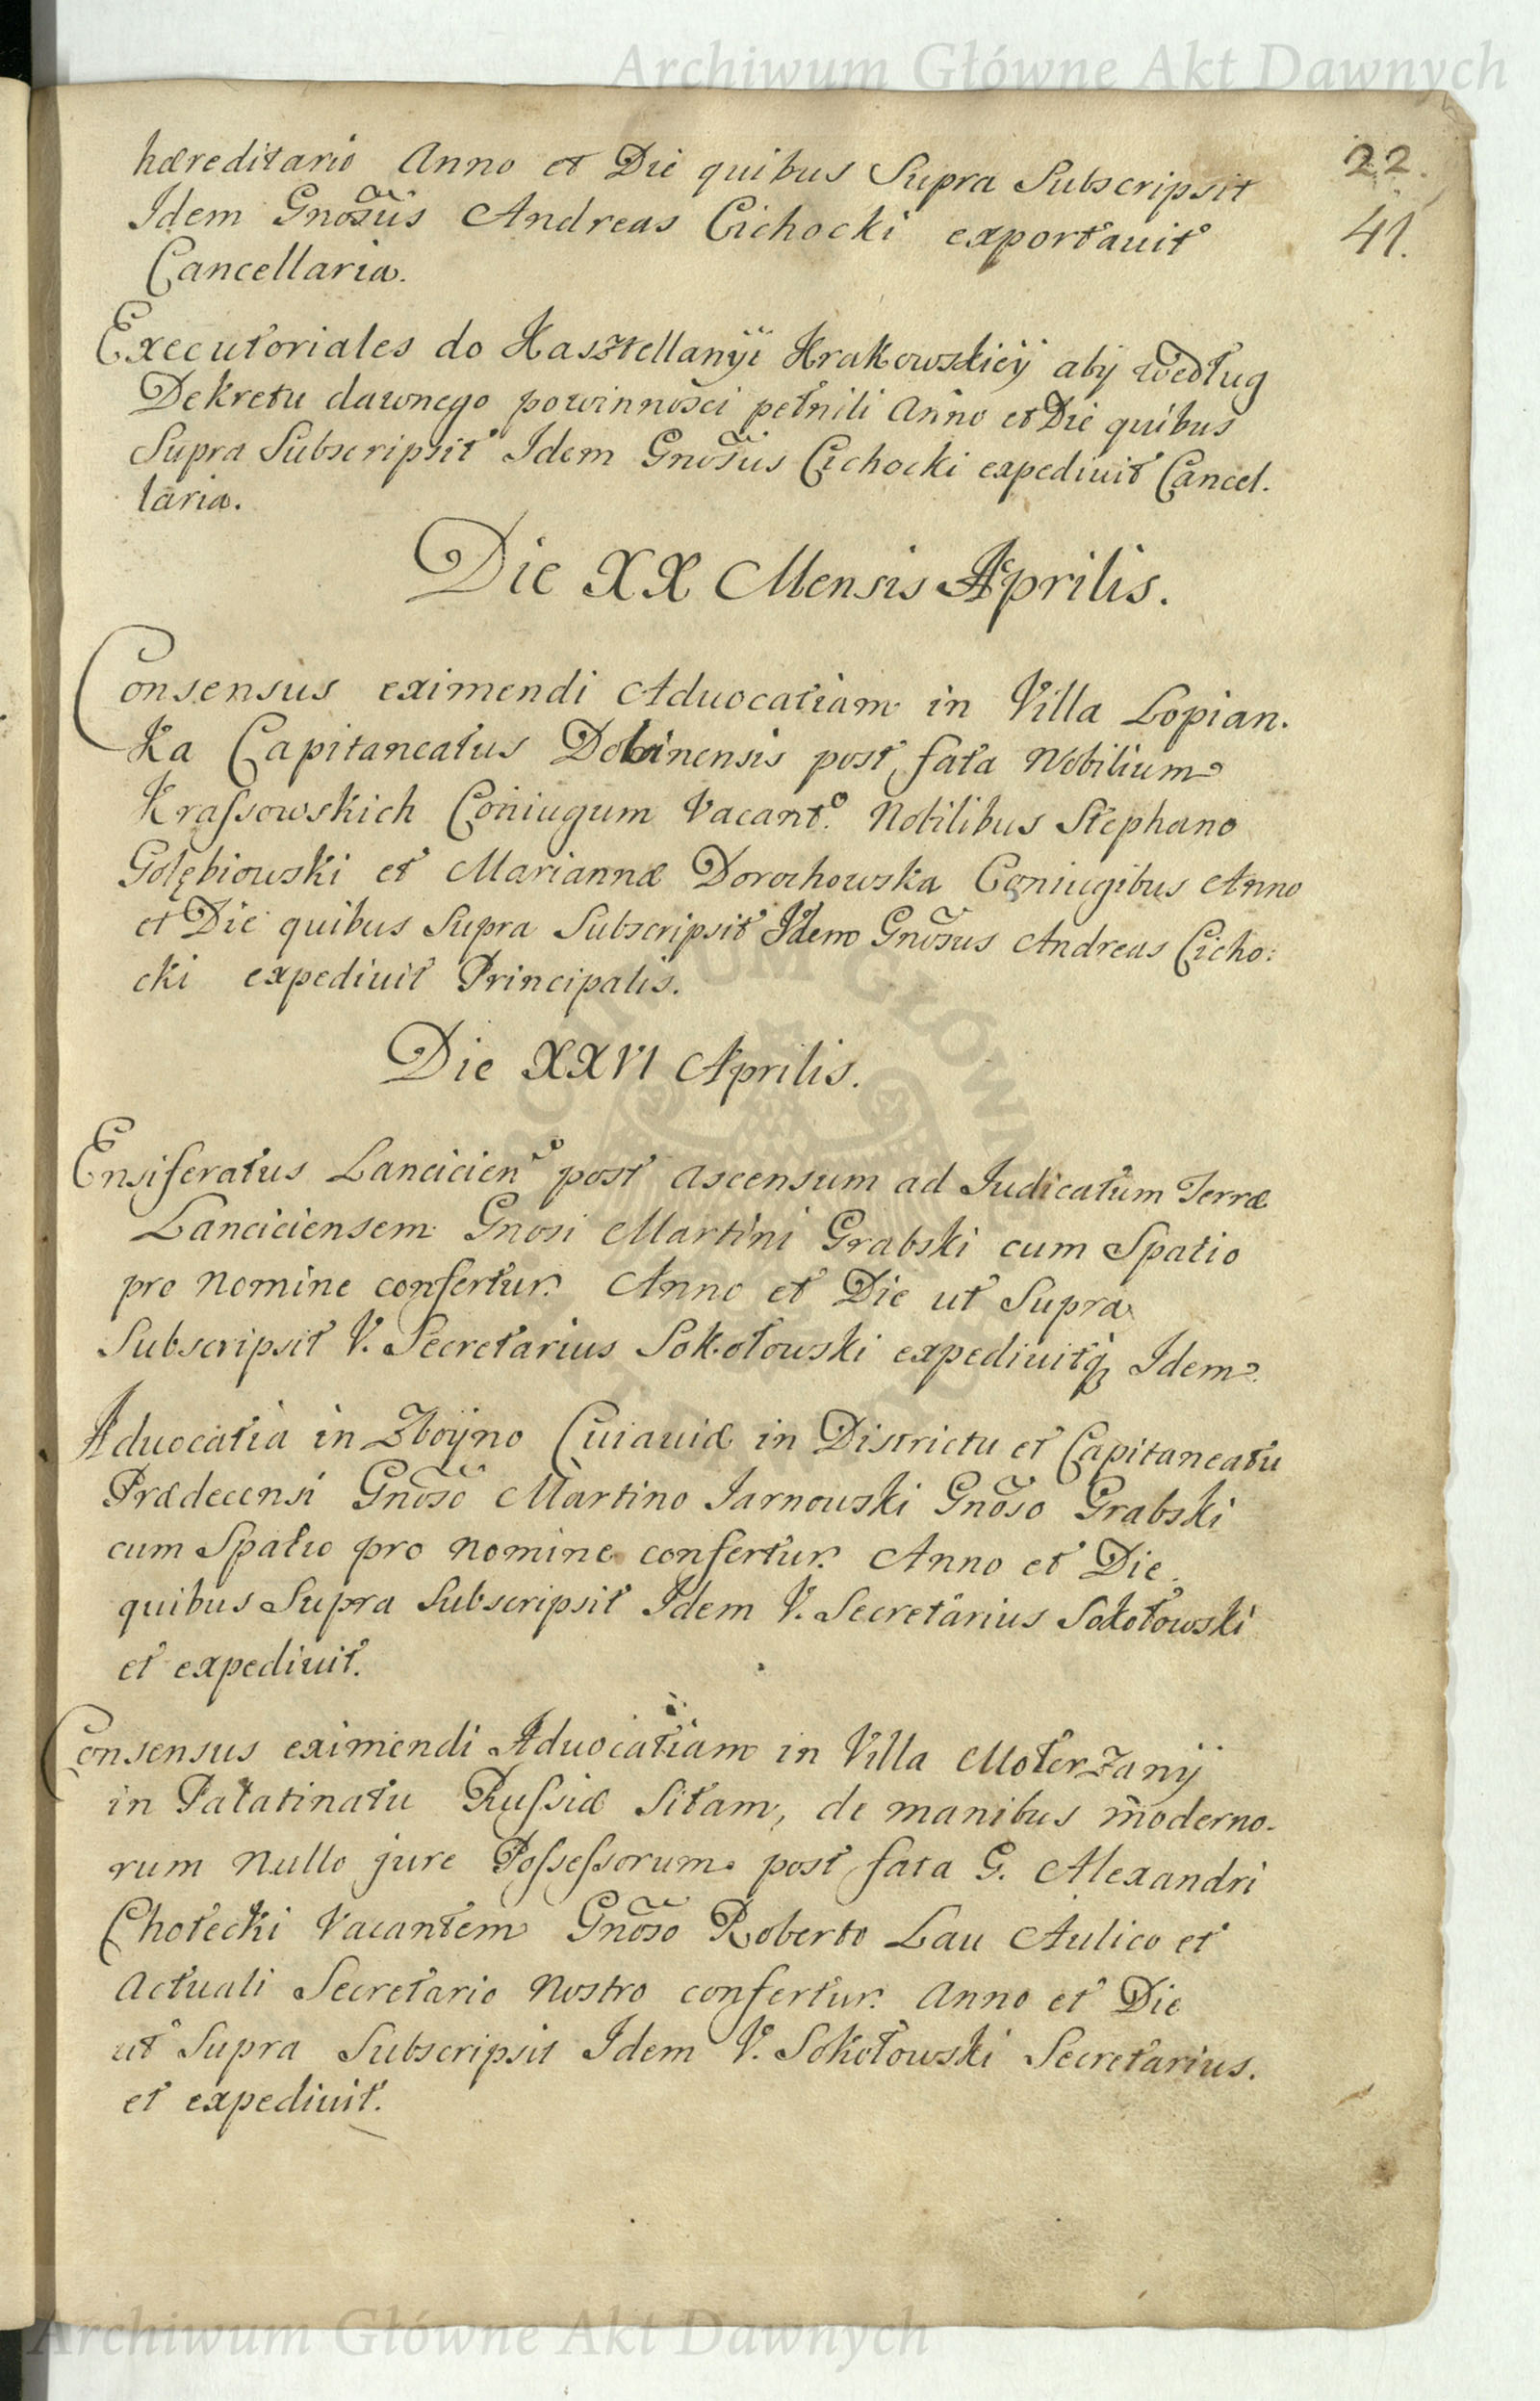 Archiwum Główne Akt Dawnych
22.
41.
hæreditario Anno et Die quibus Supra Subscripsit
Idem Gnosus Andreas Cichocki exportauit
Cancellaria.
Executoriales do Kasztellanÿi Krakowskieÿ abÿ według
Dekretu dawnego powinnosci pełnili Anno et Die quibus
Supra Subscripsit Idem Gnosus Cichocki expediuit Cancel.
laria.
Die XX Mensis Aprilis.
Consensus eximendi Aduocatiam in Villa Lopian.
ka Capitaneatus Dolinensis post fata Nobilium
Krassowskich Coniugum Vacant. Nobilibus Stephano
Gołębiowski et Mariannæ Dorochowska Coniugibus Anno
et Die quibus Supra Subscripsit Idem Gnosus Andreas Cicho:
cki expediuit Principalis.
Die XXVI Aprilis.
Ensiferatus Lancicien post ascensum ad Iudicatum Terræ
Lanciciensem Gnosi Martini Grabski cum Spatio
pro Nomine confertur. Anno et Die ut Supra
Subscripsit V. Secretarius Sokołowski expediuitq Idem.
Aduocatia in Zboÿno Cuiauiæ in Districtu et Capitaneatu
Prædecensi Gnoso Martino Jarnowski Gnoso Grabski
cum Spatio pro Nomine confertur. Anno et Die
quibus Supra Subscripsit Idem V. Secretarius Sokołowski
et expediuit.
Consensus eximendi Aduocatiam in Villa Moterzanÿ
in Palatinatu Russiæ Sitam, de manibus moderno-
rum Nullo jure Possessorum post fata G. Alexandri
Chołecki Vacantem Gnoso Roberto Lau Aulico et
Actuali Secretario Nostro confertur. Anno et Die
ut Supra Subscripsit Idem V. Sokołowski Secretarius.
et expediuit.
Archiwum Główne Akt Dawnych